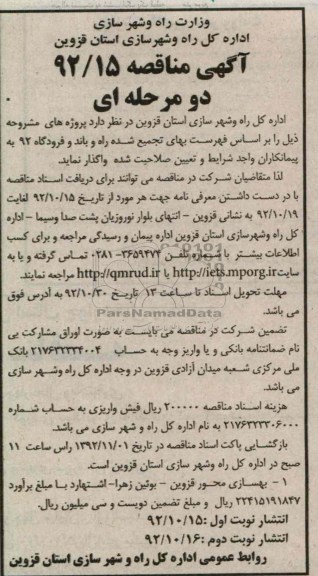 وزارت راه وشهر سازی
اداره کل راه وشهرسازی استان قزوین
آگهی مناقصه ۹۲/۱۵
دو مرحله ای
اداره کل راه وشهر سازی استان قزوین در نظر دارد پروژه های مشروحه
ذیل را بر اساس فهرست بهای تجمیع شده راه و باند و فرودگاه ۹۲ به
پیمانکاران واجد شرایط و تعیین صلاحیت شده واگذار نماید.
لذا متقاضیان شرکت در مناقصه می توانند برای دریافت اسناد مناقصه
با در دست داشتن معرفی نامه جهت هر مورد از تاریخ ۹۲/۱۰/۱۵ لغایت
۹۲/۱۰/۱۹ به نشانی قزوین - انتهای بلوار نوروزیان پشت صدا وسیما - اداره
کل راه وشهرسازی استان قزوین اداره پیمان و رسیدگی مراجعه و برای کسب
اطلاعات بیشتر با شماره تلفن ۳۶۵۹۴۷۴-۰۲۸۱ تماس گرفته و یا به
سایت http://iets.mporg.ir یا http://qmrud.ir مراجعه نمایند.
مهلت تحویل اسناد تا ساعت ۱۳ تاریخ ۹۲/۱۰/۳۰ به آدرس فوق
می باشد.
ParsNamadData
تضمین شرکت در مناقصه می بایست به صورت اوراق مشارکت بی
نام ضمانتنامه بانکی و یا واریز وجه به حساب ۲۱۷۶۳۲۳۳۴۰۰۴ بانک
ملی مرکزی شعبه میدان آزادی قزوین در وجه اداره کل راه وشهر سازی
می باشد.
هزینه اسناد مناقصه ۲۰۰۰۰۰ ریال فیش واریزی به حساب شماره
۲۱۷۶۲۳۳۰۶۰۰۰ به نام اداره کل راه و شهر سازی می باشد.
بازگشایی پاکت اسناد مناقصه در تاریخ ۱۳۹۲/۱۱/۰۱ راس ساعت ۱۱
صبح در اداره کل راه وشهر سازی استان قزوین است.
۱ - بهسازی محور قزوین - بوئین زهرا- اشتهارد با مبلغ برآورد
۲۲۴۱۵۱۹۱۸۴۷ ریال و مبلغ تضمین دویست و سی میلیون ریال.
انتشار نوبت اول :۹۲/۱۰/۱۵
انتشار نوبت دوم :۹۲/۱۰/۱۶
روابط عمومی اداره کل راه و شهر سازی استان قزوین